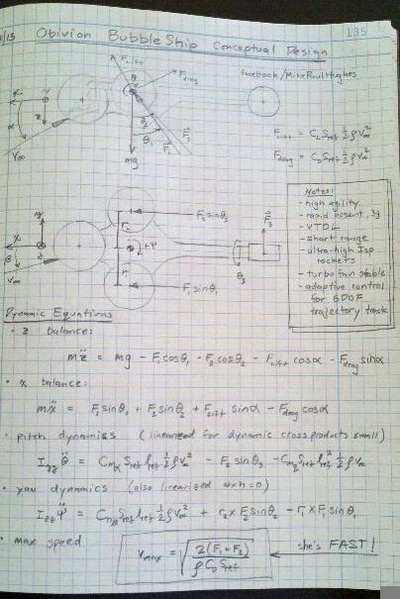 Oblivion BubbleShip Conceptual Design
135
facebook/MikePaulHughes
F_Lift
F_drag
x
z
α
V∞
θ₁
mg
F₁
F₂
F_Lift = C_L S_ref ½ ρ V∞²
F_drag = C_D S_ref ½ ρ V∞²
Notes:
- high agility
- rapid ascent, 3g
- VTOL
- short range
- ultra-high Isp
rockets
- turbo fan stable
- adaptive control
for 6DOF
trajectory track
y
x
β
V∞
F₂ sinθ₂
r₂
r₁
F₁ sinθ₁
F₃
θ₃
Dynamic Equations
• z balance:
mz̈ = mg - F₁cosθ₁ - F₂cosθ₂ - F_Lift cosα - F_drag sinα
• x balance:
mẍ = F₁sinθ₁ + F₂sinθ₂ + F_Lift sinα - F_drag cosα
• pitch dynamics (linearized for dynamic cross products small)
I_yy θ̈ = C_mα S_ref l_ref ½ ρ V∞² - F₃ sinθ₃ - C_mq S_ref l²_ref ½ ρ V∞
• yaw dynamics (also linearized ω×h=0)
I_zz Ψ̈ = C_nβ S_ref l_ref ½ ρ V∞² + r₂ × F₂ sinθ₂ - r₁ × F₁ sinθ₁
• max speed
V_max = √(2(F₁+F₂) / ρ C_D S_ref)
she's FAST!